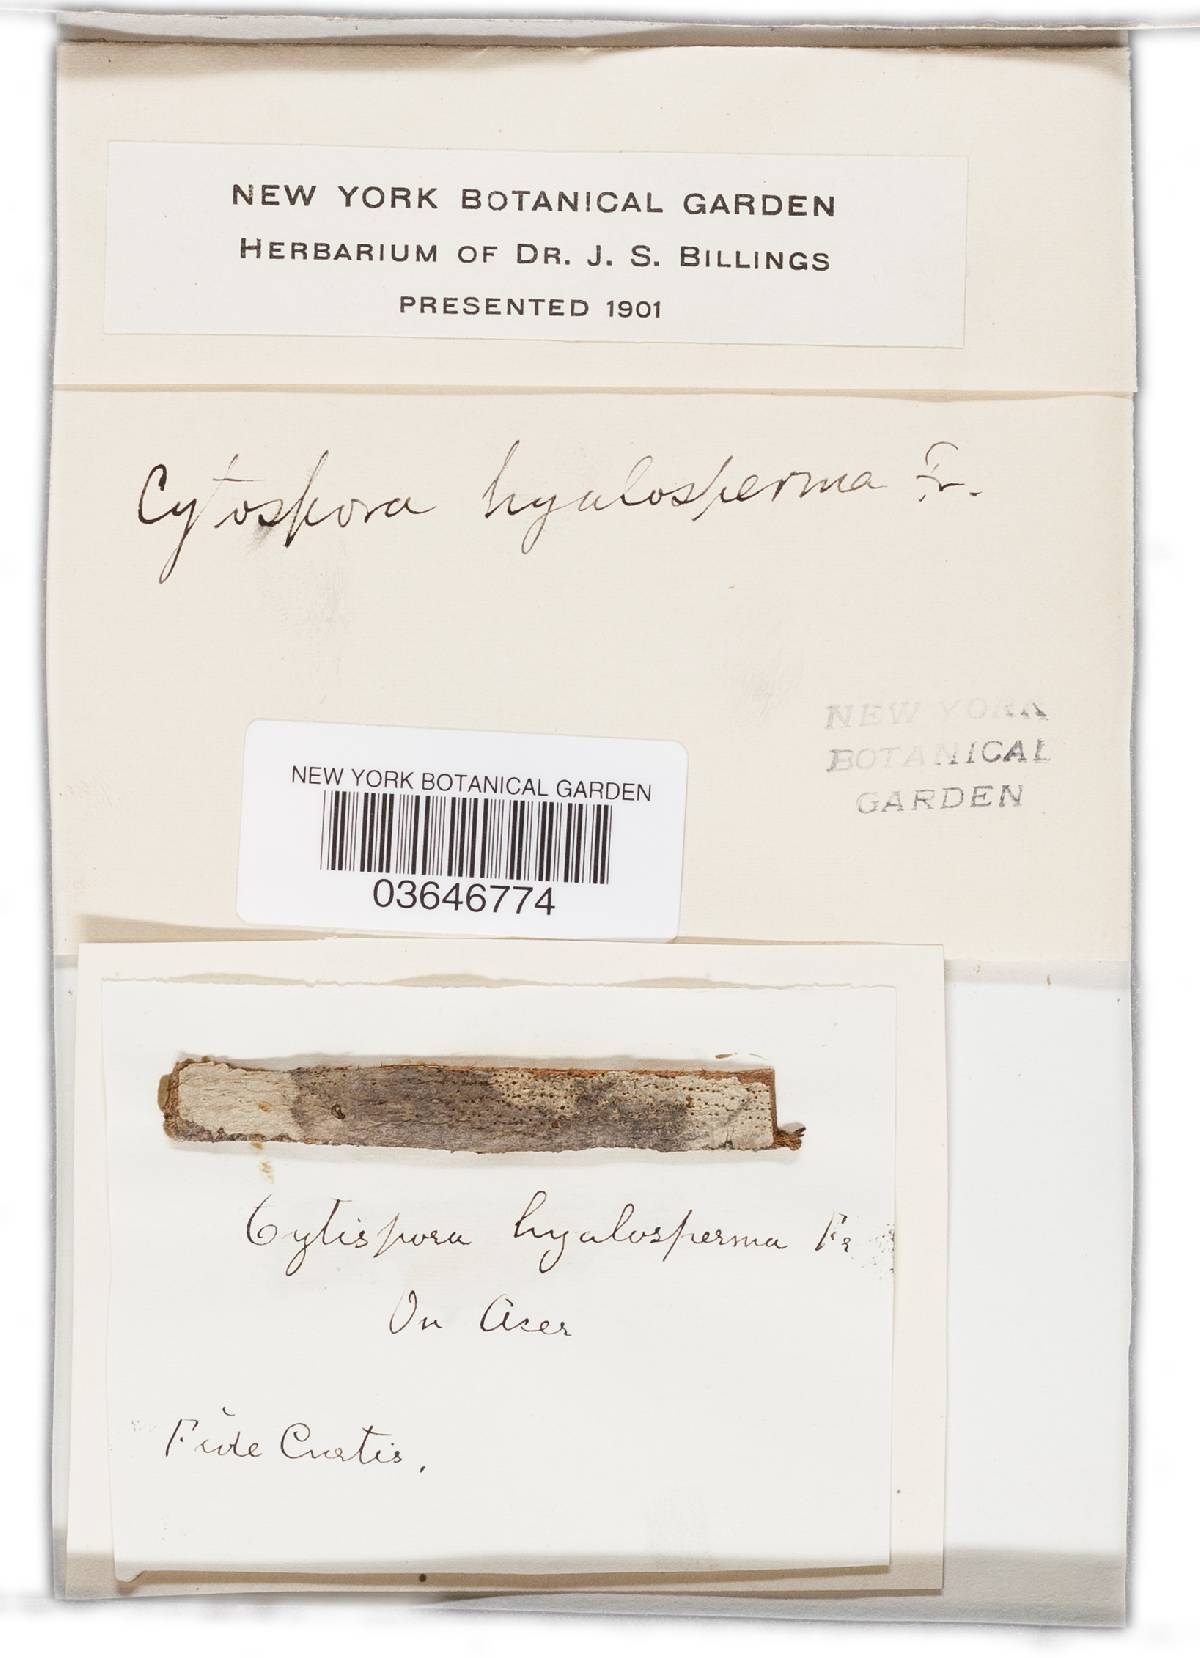 NEW YORK BOTANICAL GARDEN
HERBARIUM OF DR. J. S. BILLINGS
PRESENTED 1901
Cytospora hyalosperma Fr.
NEW YORK
BOTANICAL
GARDEN
NEW YORK BOTANICAL GARDEN
03646774
Cytispora hyalosperma Fr
On Acer
Fide Curtis.